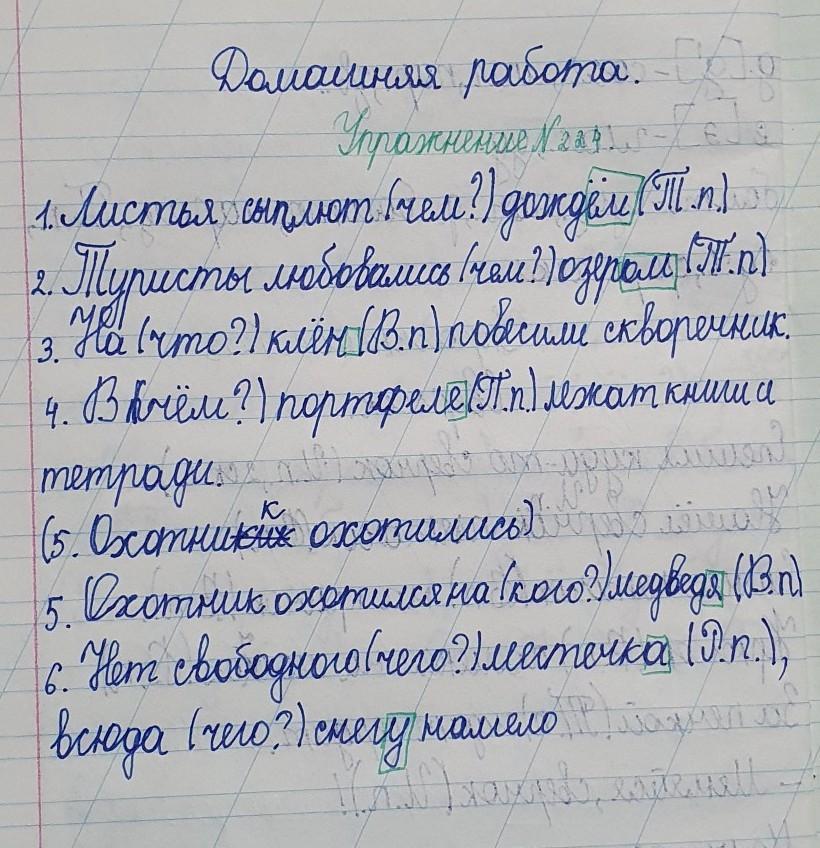 Домашняя работа.
Упражнение № 224.
1. Листья сыплют (чем?) дождём (Т.п.)
2. Туристы любовались (чем?) озером (Т.п)
3. На (что?) клён (В.п) повесили скворечник.
4. В (чём?) портфеле (П.п.) лежат книги и
тетради.
(5. Охотник охотились)
5. Охотник охотился на (кого?) медведя (В.п)
6. Нет свободного (чего?) местечка (Р.п.),
всюда (чего?) снегу намело